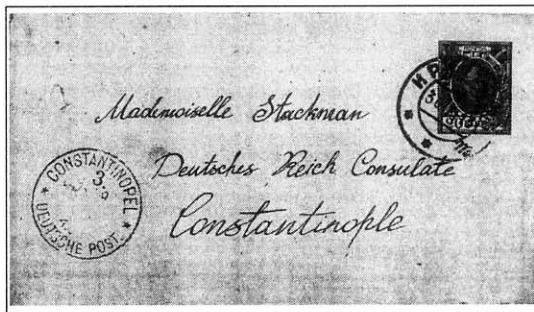 Mademoiselle Stackman
Deutsches Reich Consulate
Constantinople
CONSTANTINOPEL
DEUTSCHE POST.